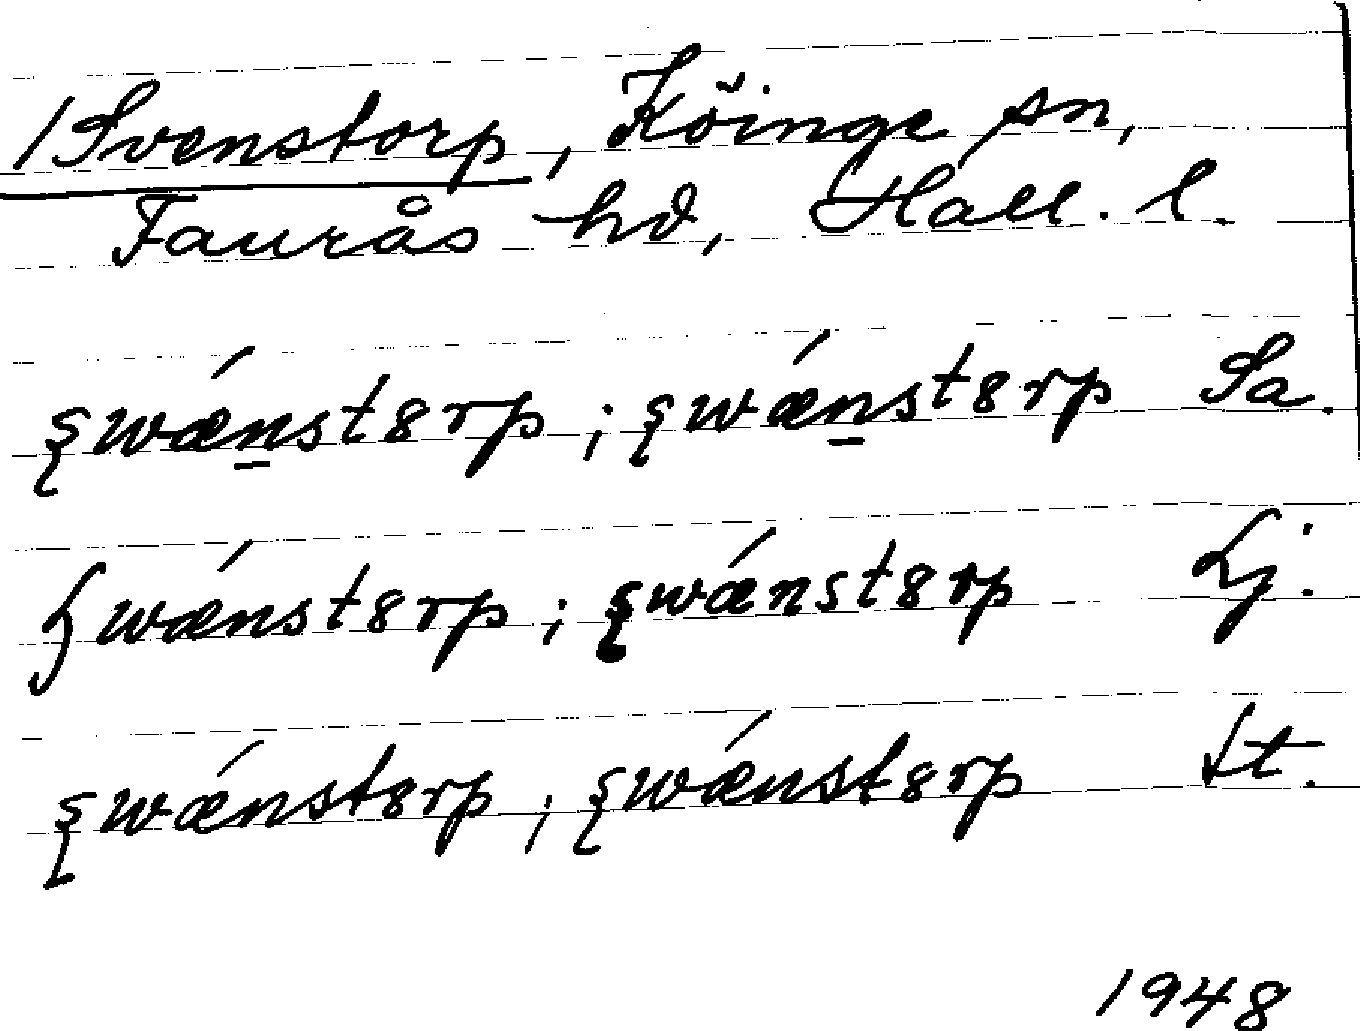 /Svenstorp, Köinge sn,
Faurås hd, Hall. l.
ʂwǽn̲st8rp ; ʂwǽn̲st8rp Sa.
ʂwǽnst8rp ; ʂwǽnst8rp Lj.
ʂwǽnst8rp ; ʂwǽnst8rp St.
1948